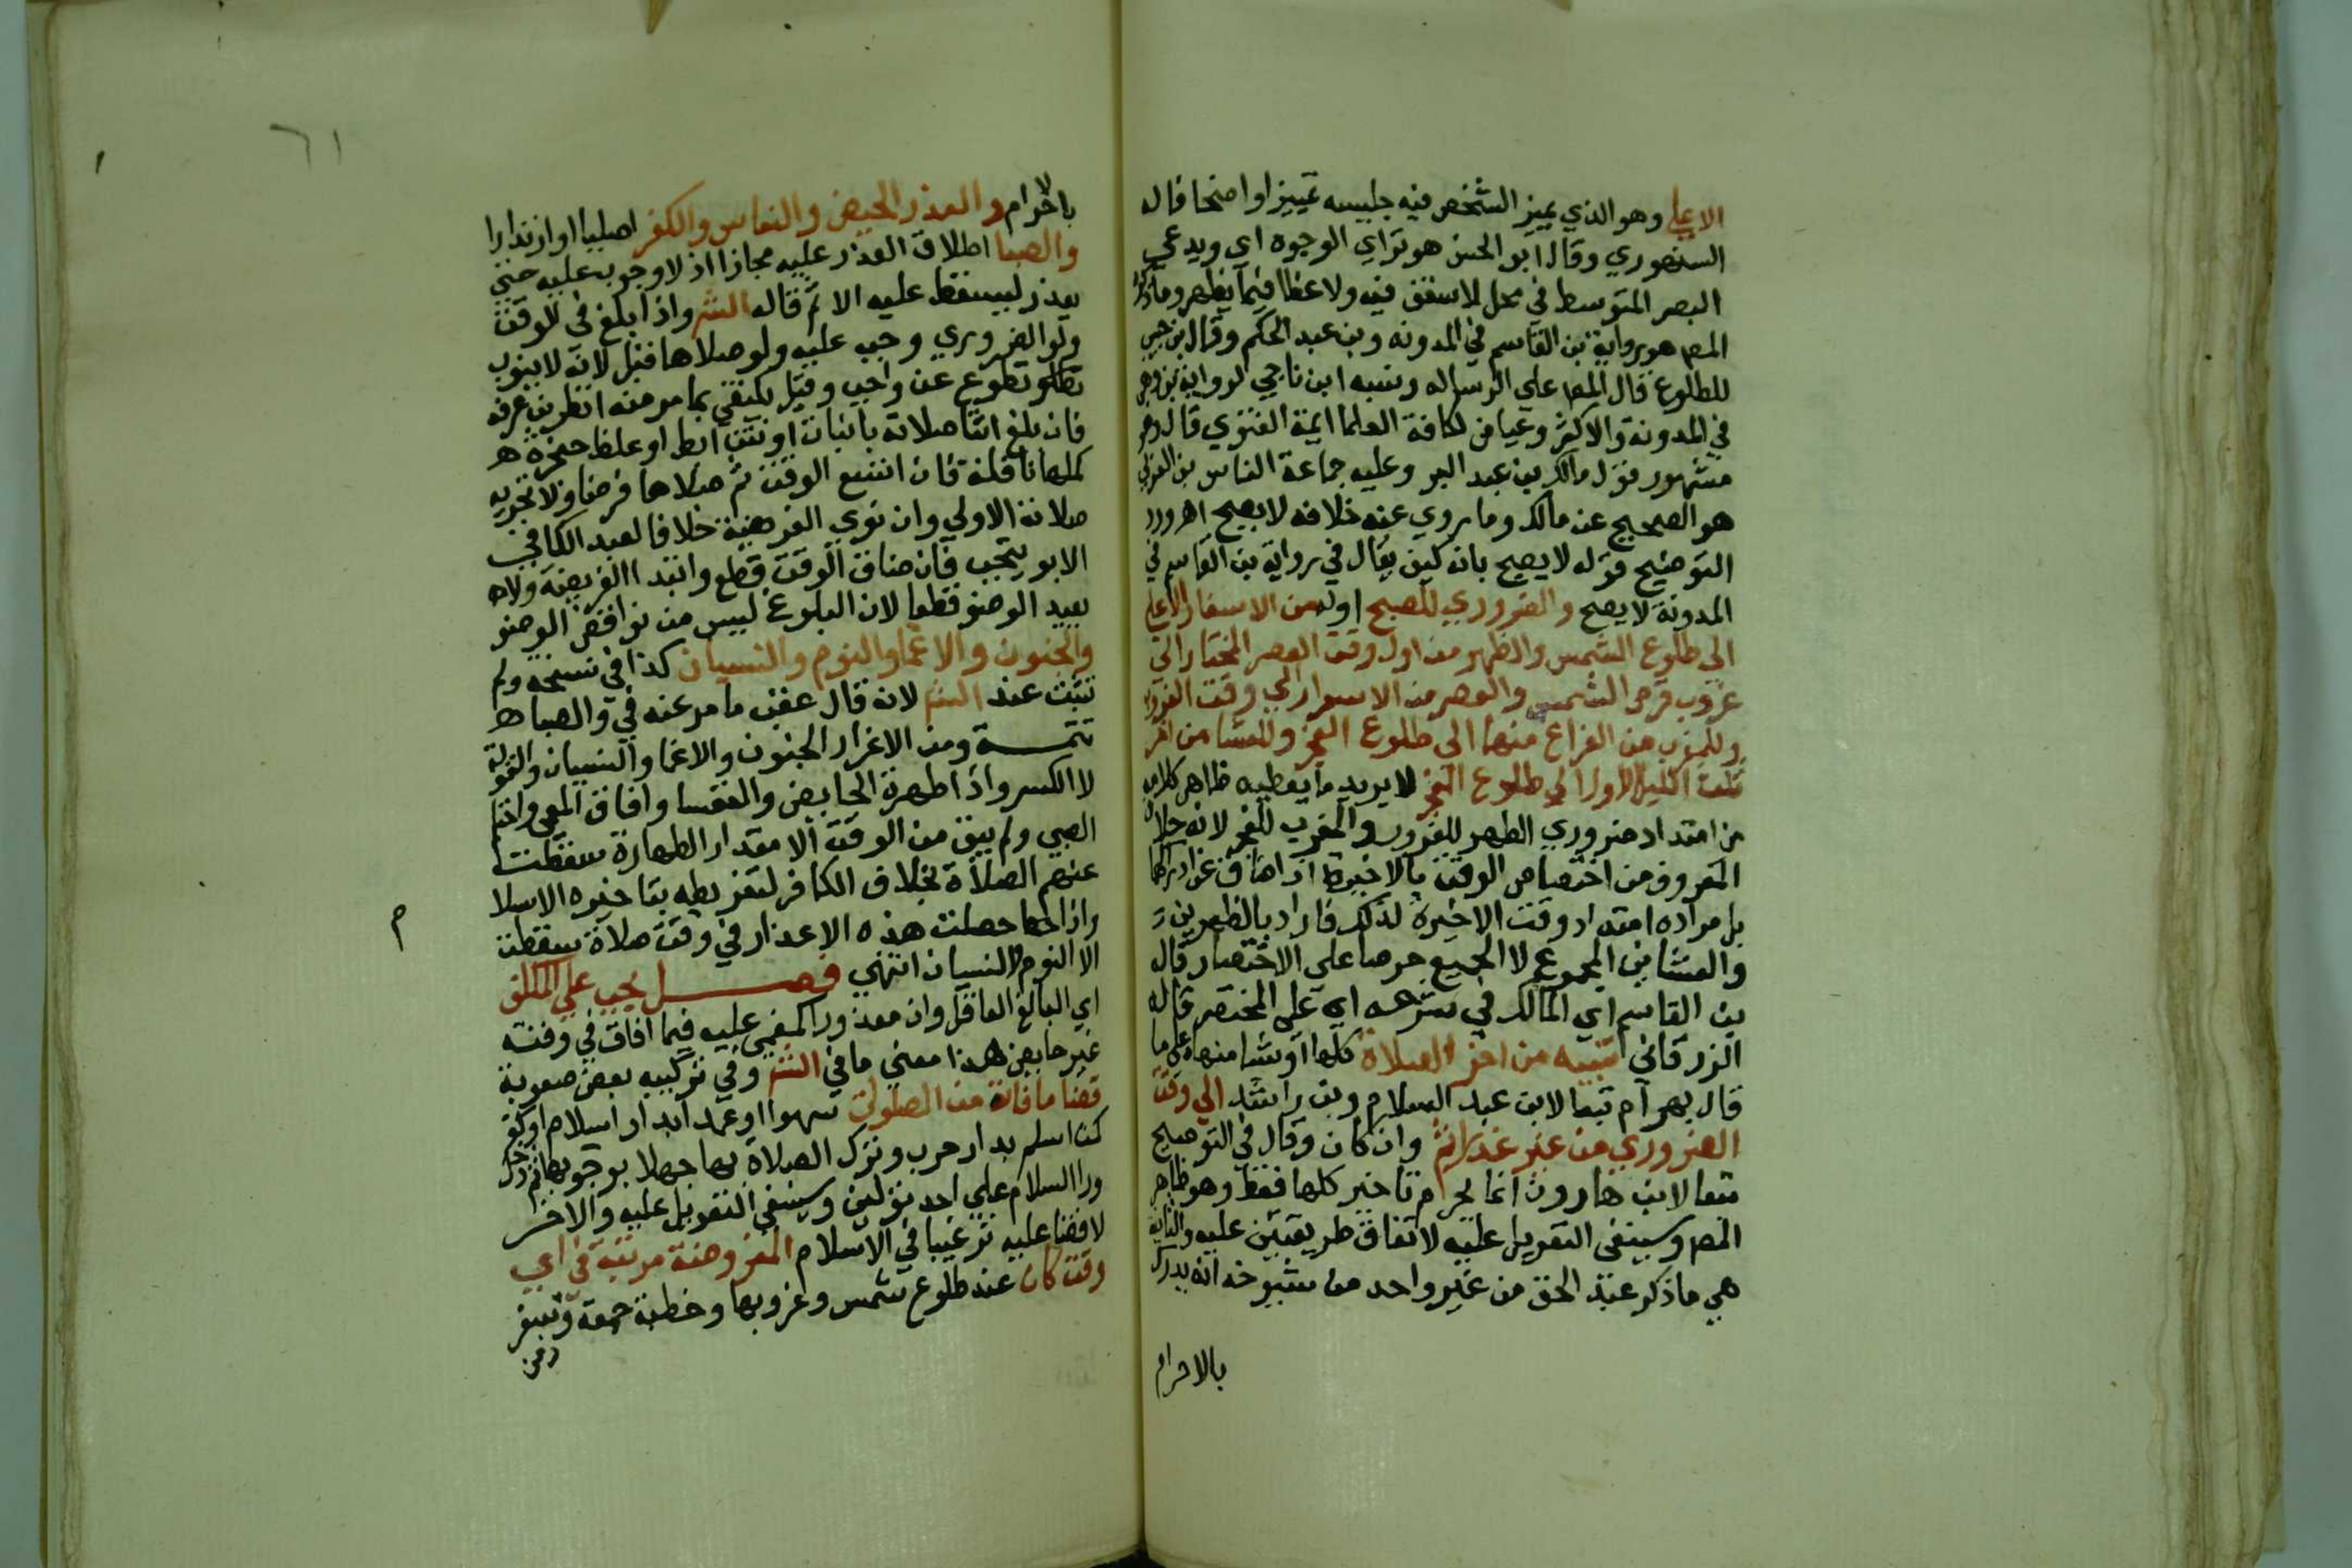 الاعلي وهو الذي يميز الشخص فيه جليسه تمييزا واضحا قاله
السنهوري وقال ابو الحسن هو تراي الوجوه اي ويدعي
البصر المتوسط في محل لا سقف فيه ولا غطا فيما يظهر وما ذكره
المص هو رواية بن القاسم في المدونه وبن عبد الحكم وقال بن حبيب
للطلوع قال المص علي الرساله ونسبه ابن ناجي لرواية بن وهب
في المدونة والاكثر وعياض لكافة العلما ايمة الفتوي قال وهو
مشهور قول مالك بن عبد البر وعليه جماعة الناس بن العربي
هو الصحيح عن مالك وما روي عنه خلافه لا يصح اهـ ورد
التوضيح قوله لا يصح بانه كيف يقال في رواية بن القاسم في
المدونة لا يصح والضروري للصبح اوله من الاسفار الاعلي
الي طلوع الشمس والظهر من اول وقت العصر المختار الي
غروب قرص الشمس والعصر من الاسفرار الي وقت الغروب
وللمغرب من الفراغ منها الي طلوع الفجر وللعشا من اخر
ثلث الليل الاول الي طلوع الفجر لا يريد ما يعطيه ظاهر كلامه
من امتداد ضروري الظهر للغروب والمغرب للفجر لانه خلاف
المعروف من اختصاص الوقت بالاخيرة اذا ضاق عن ادراكهما
بل مراده امتداد وقت الاخيرة لذلك فاراد بالظهرين
والعشاين المجموع لا الجميع حرصا علي الاختصار قال
بن القاسم اي المالك في شرحه اي علي المختصر قاله
الزرقاني تنبيه من اخر الصلاة كلها او شيا منها علي ما
قال بهرام تبعا لابن عبد السلام وبن راشد الي وقت
الضروري من غير عذر اثم وان كان وقال في التوضيح
تبعا لابن هارون انما يحرم تاخير كلها فقط وهو ظاهر
المص وينبغي التعويل عليه لاتفاق طريقتين عليه والثانية
هي ما ذكر عبد الحق من غير واحد من شيوخه انه يدرك
بالاحرام
٦١
بالاحرام والعذر الحيض والنفاس والكفر اصليا او ارتدادا
والصبا اطلاق العذر عليه مجازا اذ لا وجوب عليه حتي
يعذر ليسقط عليه الاثم قاله الش واذا بلغ في الوقت
ولو الضروري وجب عليه ولو صلاها قبل لانه لا ينوب
تطوع عن واجب وقيل يكتفي بما مر منه انظر بن عرفه
فان بلغ اثنا صلاته بانبات او نتن ابط او غلظ حنجرة
كملها نافلة فان اتسع الوقت ثم صلاها فرضا ولا تجزيه
صلاته الاولي وان نوي الفرضية خلافا لعبد الكافي
الابويتجبي فان ضاق الوقت قطع وابتدا الفريضة ولا
يعيد الوضو قطعا لان البلوغ ليس من نواقض الوضو
والجنون والاغما والنوم والنسيان كذا في نسخه ولم
تثبت عند الش لانه قال عقب ما مر عنه في والصبا
تتمـــة ومن الاعذار الجنون والاغما والنسيان والنوم
لا السكر واذا طهرت الحايض والنفسا وافاق المغمي واحتلم
الصبي ولم يبق من الوقت الا مقدار الطهارة سقطت
عنهم الصلاة بخلاف الكافر لتفريطه بتاخيره الاسلا
م
واذا حصلت هذه الاعذار في وقت صلاة سقطت
الا النوم والنسيان انتهي فصـــل يجب علي المكلف
اي البالغ العاقل وان معذورا كمغمي عليه فيما افاق في وقته
غير حايض هذا معني ما في الش وفي تركيبه بعض صعوبة
قضا ما فاته من الصلوات سهوا او عمدا بدار اسلام او كفر
كمن اسلم بدار حرب وترك الصلاة بها جهلا بوجوبها ثم دخل
دار السلام علي احد قولين وينبغي التعويل عليه والاخر
لا قضا عليه ترغيبا في الاسلام المفروضة مرتبة في اي
وقت كان عند طلوع شمس وغروبها وخطبة جمعة